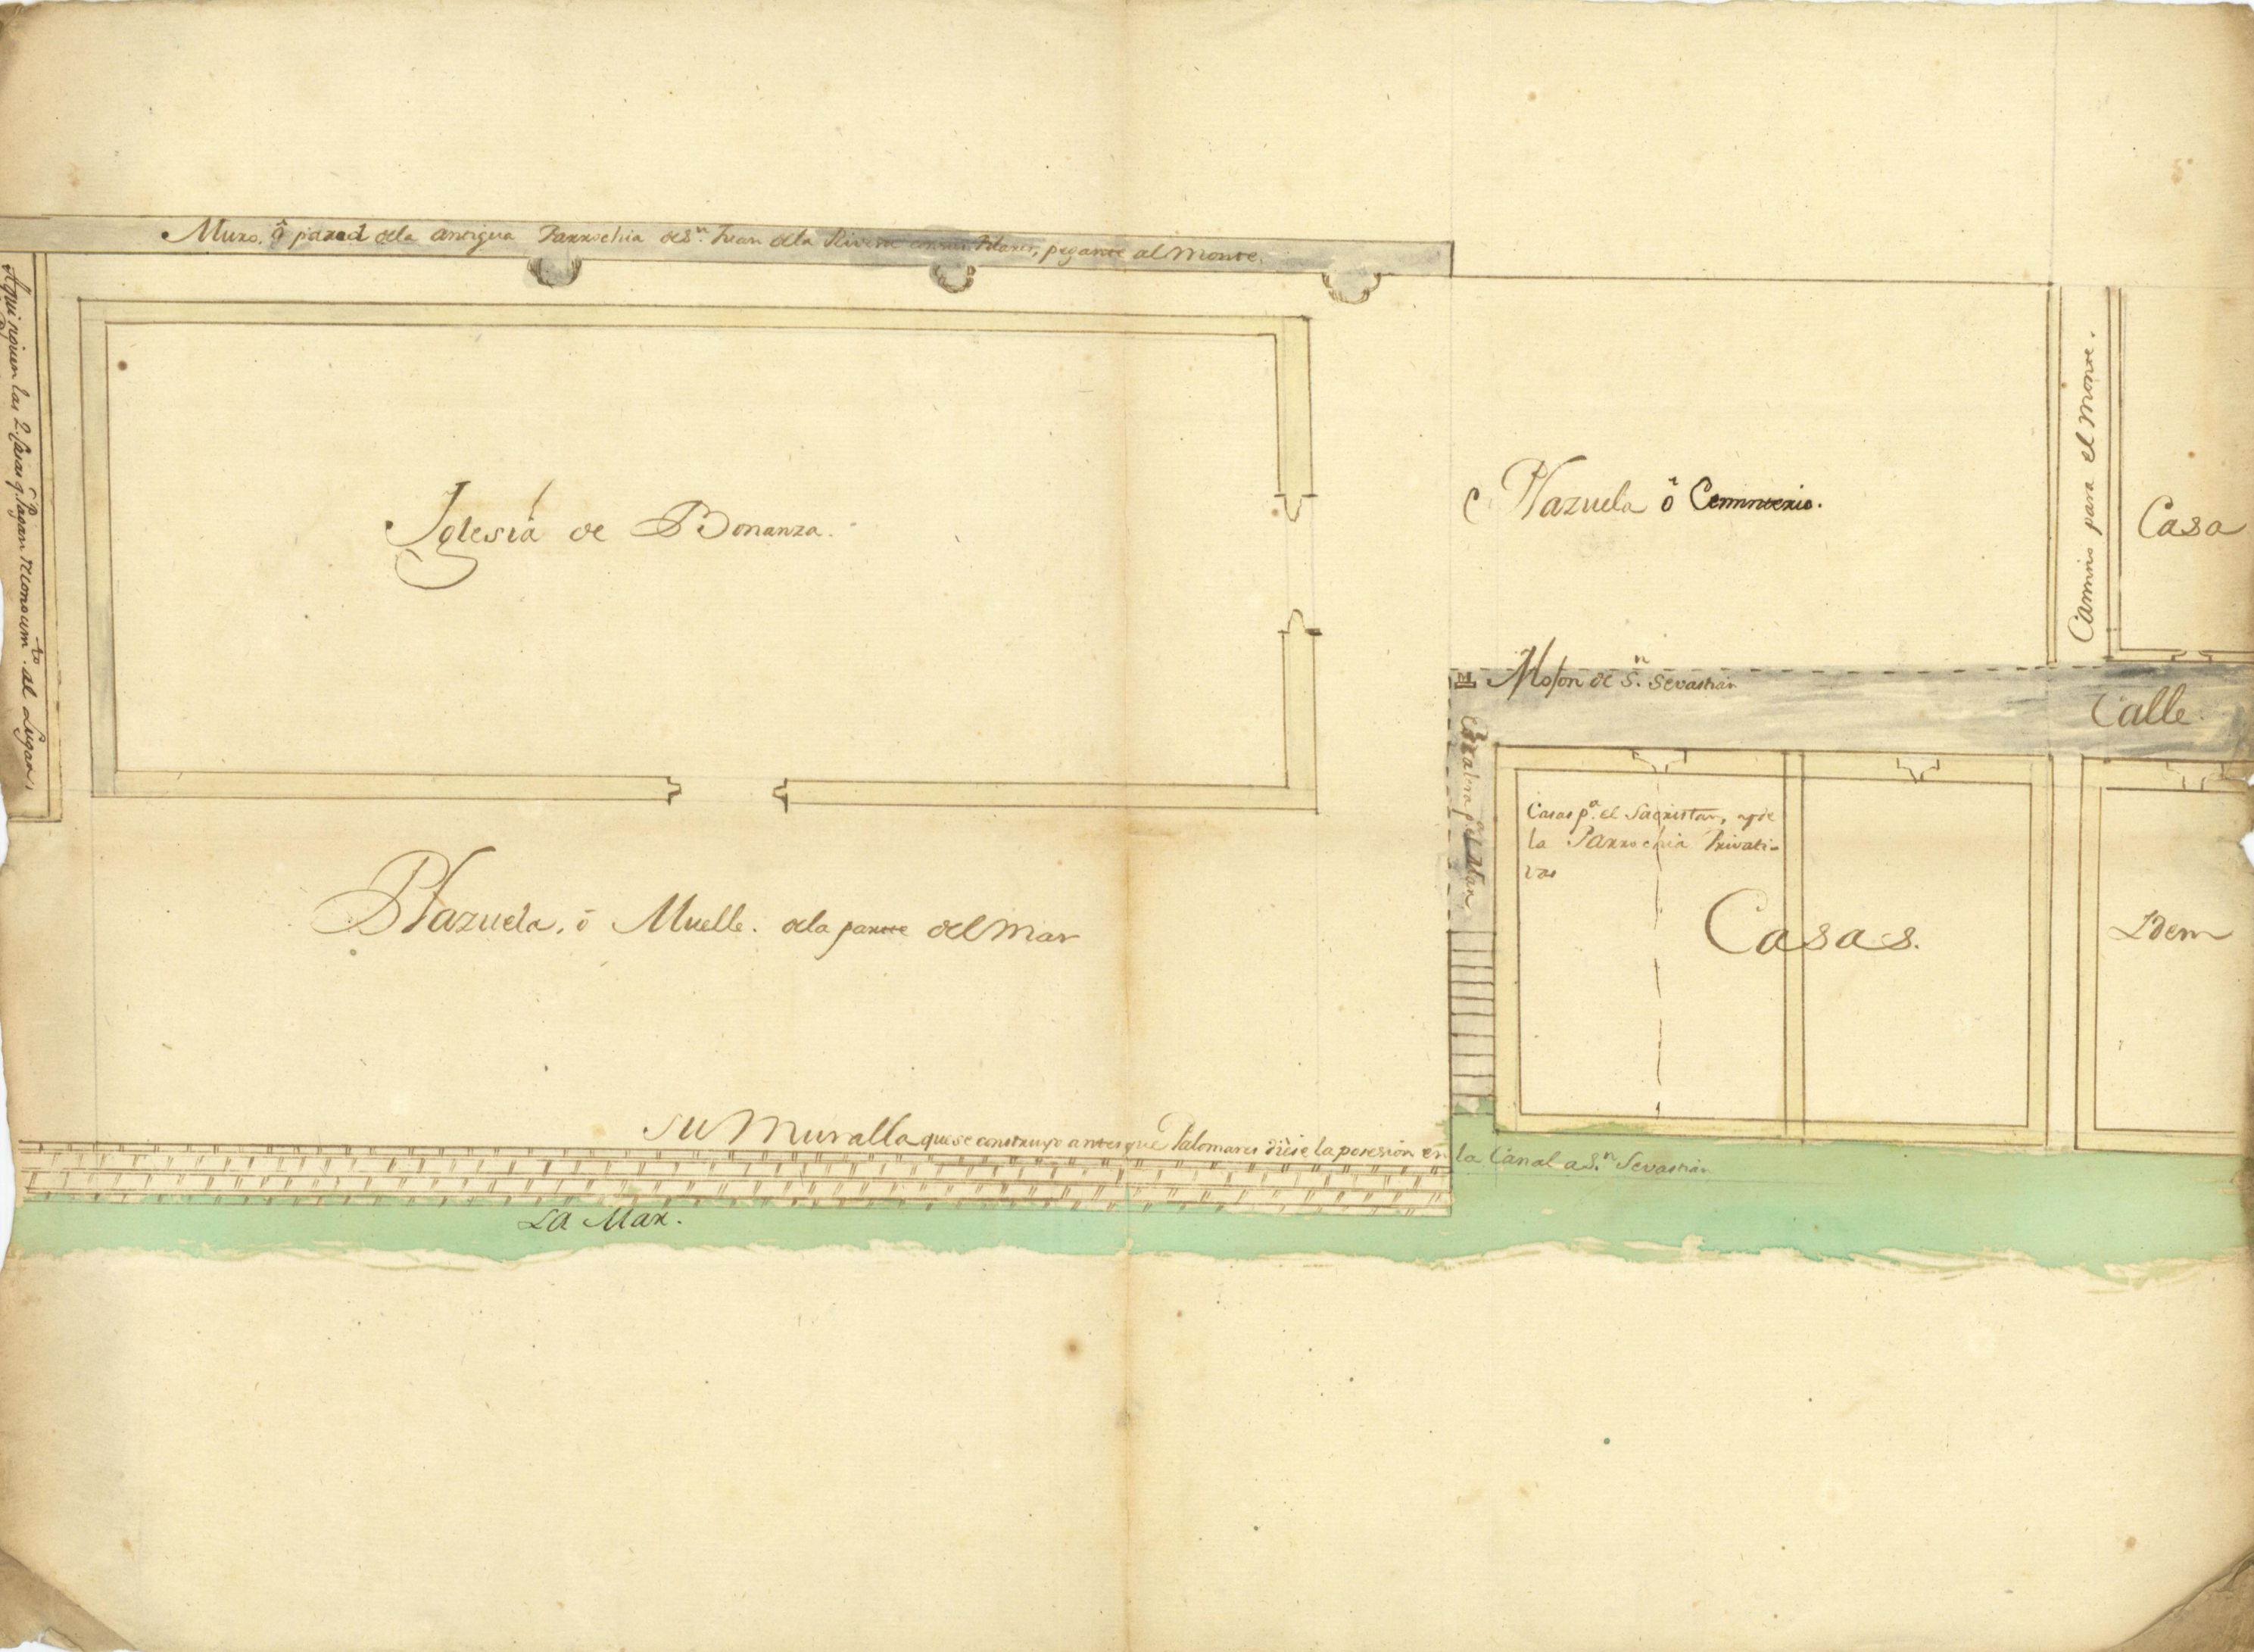 Muro, ô pared dela antigua Parrochia de Sn. Juan dela Rivera con sus Pilares, pegante al Monte.
Aqui siguen las 2. casas q.e Pagan reconocim.to al Lugar,
Iglesia de Bonanza.
Plazuela ô Cemnterio.
Camino para el Monte.
Casa
Mojon de S.n Sevastián
Calle.
Escalera p.a el Mar,
Casas p.a el Sacristan, de
la Parrochia Privati-
vas
Casas.
Idem
Plazuela, ô Muelle. dela parte del Mar
su Muralla que se construyo antes que Palomares diese la posesión en la Canal a S.n Sevastián
La Mar.